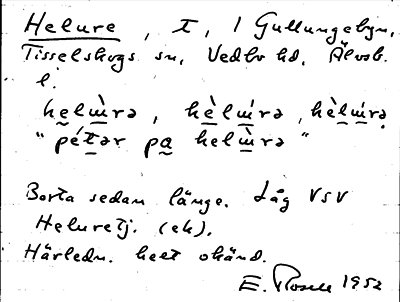 Helure, t, i Gullungebyn,
Tisselskogs sn, Vedbo hd, Älvsb.
l.
helùrə, hèlúrə, hèlúrə.
"pétər pa helùrə"
Borta sedan länge. Låg VSV
Heluretj. (ek).
Härledn. helt okänd.
E. Rosell 1952